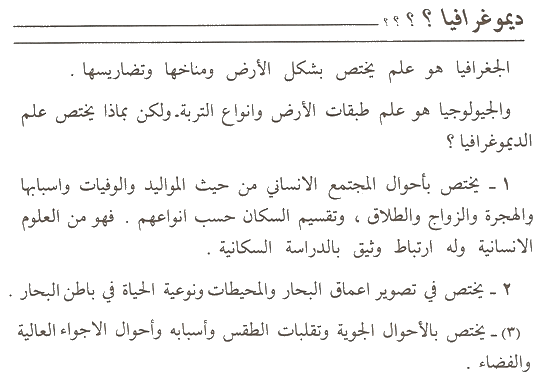 ديموغرافيا ؟ ؟ ؟ ؟
الجغرافيا هو علم يختص بشكل الأرض ومناخها وتضاريسها .
والجيولوجيا هو علم طبقات الأرض وانواع التربة ـ ولكن بماذا يختص علم
الديموغرافيا ؟
١ ـ يختص بأحوال المجتمع الانساني من حيث المواليد والوفيات واسبابها
والهجرة والزواج والطلاق ، وتقسيم السكان حسب انواعهم . فهو من العلوم
الانسانية وله ارتباط وثيق بالدراسة السكانية .
٢ ـ يختص في تصوير اعماق البحار والمحيطات ونوعية الحياة في باطن البحار .
(٣) ـ يختص بالأحوال الجوية وتقلبات الطقس وأسبابه وأحوال الاجواء العالية
والفضاء .